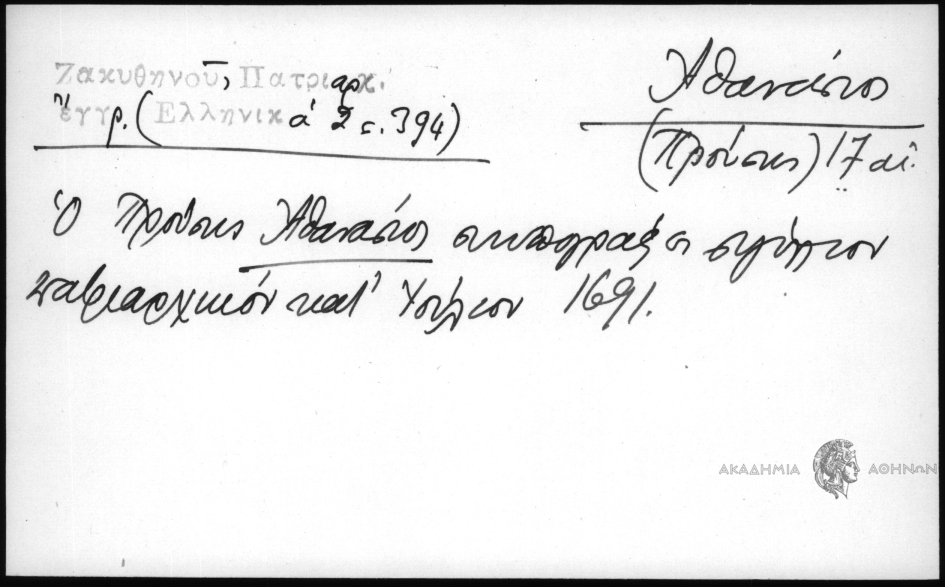 Ζακυθηνοῦ, Πατριαρχ.
ἔγγρ. (Ἑλληνικά 2 σ. 394)
Ἀθανάσιος
(Προύσης) 17 αἰ.
Ὁ Προύσης Ἀθανάσιος συνυπογράφει σιγίλλιον
πατριαρχικόν κατ' Ἰούλιον 1691.
ΑΚΑΔΗΜΙΑ ΑΘΗΝΩΝ